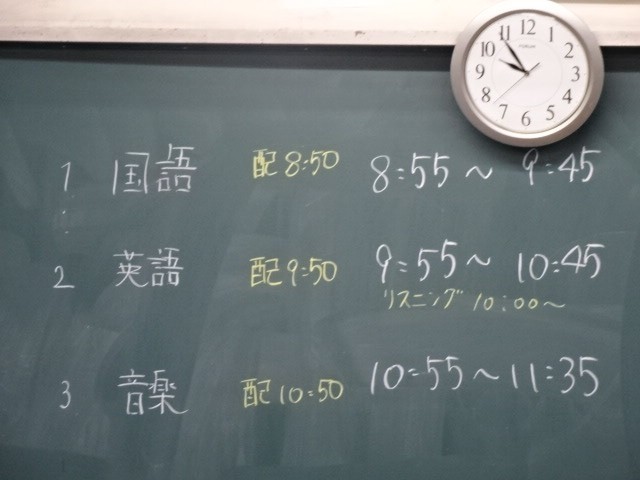 12
1
2
3
4
5
6
7
8
9
10
11
1 国語 配8:50 8:55～9:45
2 英語 配9:50 9:55～10:45
リスニング 10:00～
3 音楽 配10:50 10:55～11:35